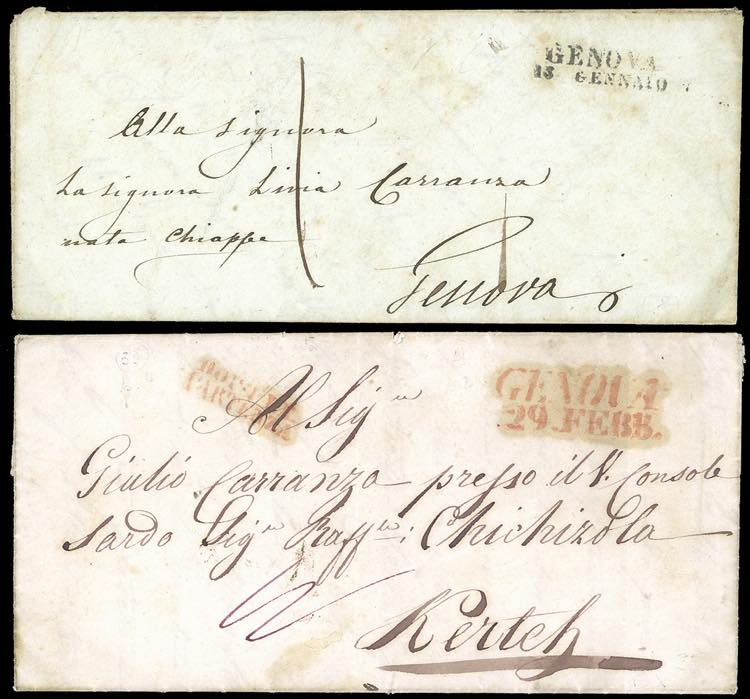 GENOVA
13 GENNAIO
Alla Signora
La Signora Livia Carranza
nata Chiappe
Genova
GENOVA
29. FEBB.
Al Sig.re
Giulio Carranza presso il V. Console
Sardo Sig.r Raff.le: Chichizola
Kertch